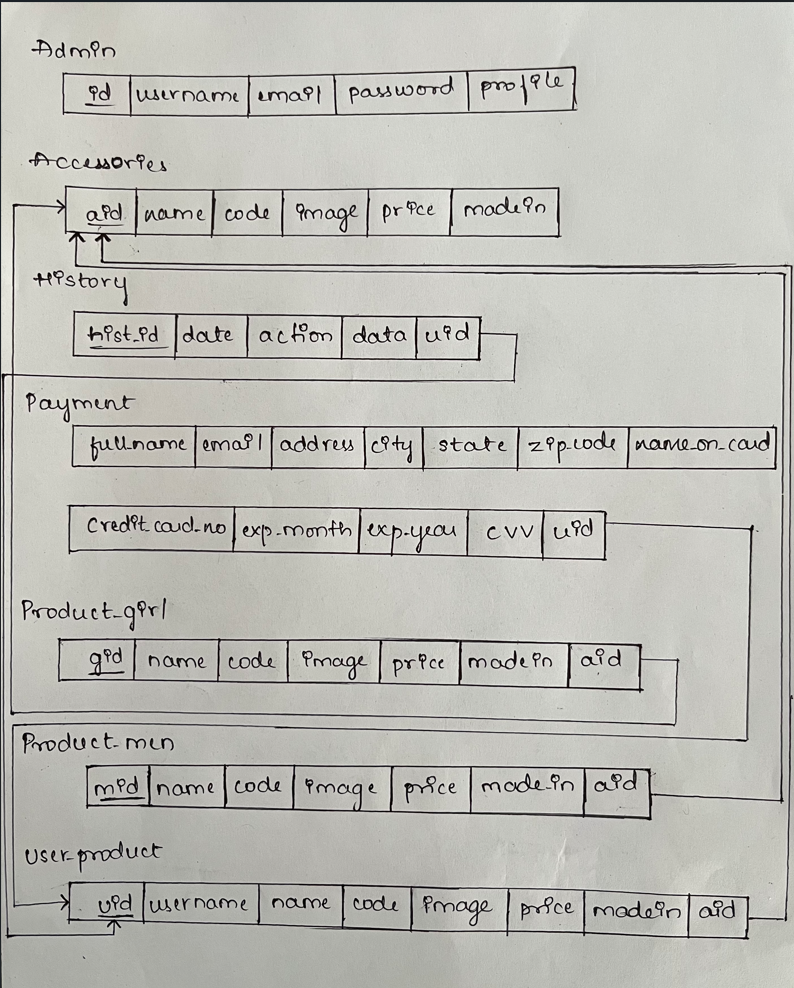 Admin
id username email password profile
Accessories
aid name code image price madein
History
hist_id date action data uid
Payment
fullname email address city state zip_code name_on_card
Credit_card_no exp_month exp_year cvv uid
Product_girl
gid name code image price madein aid
Product_men
mid name code image price made_in aid
user_product
uid username name code image price madein aid